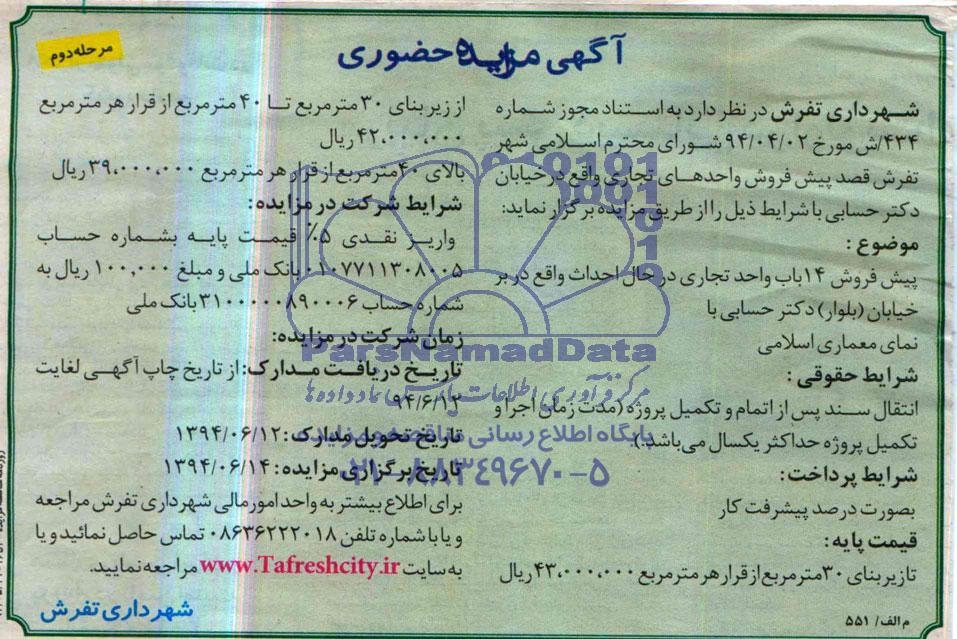 مرحله دوم
آگهی مزایده حضوری
شهرداری تفرش در نظر دارد به استناد مجوز شماره
۴۳۴/ش مورخ ۹۴/۰۴/۰۲ شورای محترم اسلامی شهر
تفرش قصد پیش فروش واحدهای تجاری واقع در خیابان
دکتر حسابی با شرایط ذیل را از طریق مزایده برگزار نماید:
موضوع :
پیش فروش ۱۴ باب واحد تجاری در حال احداث واقع در بر
خیابان (بلوار) دکتر حسابی با
نمای معماری اسلامی
شرایط حقوقی :
انتقال سند پس از اتمام و تکمیل پروژه (مدت زمان اجرا و
تکمیل پروژه حداکثر یکسال می‌باشد.)
شرایط پرداخت:
بصورت درصد پیشرفت کار
قیمت پایه:
تا زیربنای ۳۰ مترمربع از قرار هر مترمربع ۴۳،۰۰۰،۰۰۰ ریال
از زیربنای ۳۰ مترمربع تا ۴۰ مترمربع از قرار هر مترمربع
۴۲،۰۰۰،۰۰۰ ریال
بالای ۴۰ مترمربع از قرار هر مترمربع ۳۹،۰۰۰،۰۰۰ ریال
شرایط شرکت در مزایده:
واریز نقدی ۵٪ قیمت پایه بشماره حساب
۰۱۰۷۷۱۱۳۰۸۰۰۵ بانک ملی و مبلغ ۱۰۰،۰۰۰ ریال به
شماره حساب ۳۱۰۰۰۰۰۸۹۰۰۰۶ بانک ملی
زمان شرکت در مزایده:
تاریخ دریافت مدارک: از تاریخ چاپ آگهی لغایت
۹۴/۶/۱۲
تاریخ تحویل مدارک: ۱۳۹۴/۰۶/۱۲
تاریخ برگزاری مزایده: ۱۳۹۴/۰۶/۱۴
برای اطلاع بیشتر به واحد امور مالی شهرداری تفرش مراجعه
و یا با شماره تلفن ۰۸۶۳۶۲۲۲۰۱۸ تماس حاصل نمائید و یا
به سایت www.Tafreshcity.ir مراجعه نمایید.
شهرداری تفرش
م الف/ ۵۵۱
ParsNamadData
مرکز فرآوری اطلاعات پارس نماد داده ها
پایگاه اطلاع رسانی مناقصه و مزایده
۰۲۱-۸۸۳۴۹۶۷۰-۵